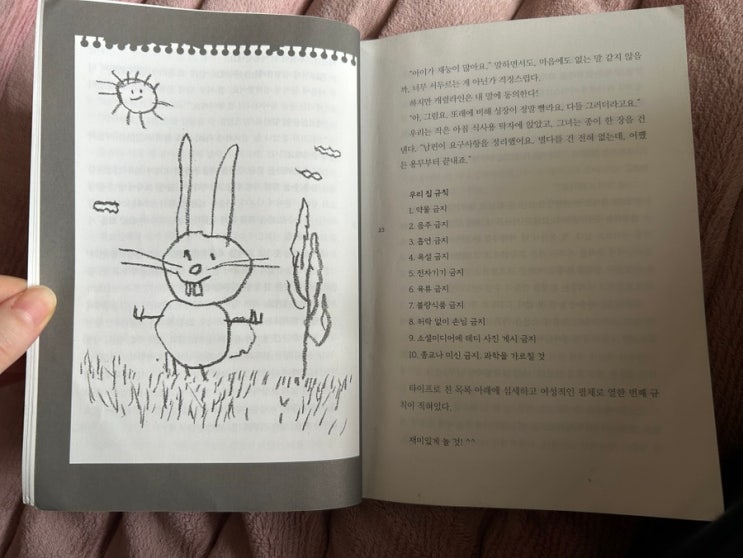 “아이가 재능이 많아요.” 말하면서도, 마음에도 없는 말 같지 않을
까, 너무 서두르는 게 아닌가 걱정스럽다.
하지만 캐럴라인은 내 말에 동의한다!
“아, 그럼요. 또래에 비해 성장이 정말 빨라요. 다들 그러더라고요.”
우리는 작은 아침 식사용 탁자에 앉았고, 그녀는 종이 한 장을 건
넨다. “남편이 요구사항을 정리했어요. 별다를 건 전혀 없는데, 어쨌
든 용무부터 끝내죠.”
우리 집 규칙
1. 약물 금지
2. 음주 금지
3. 흡연 금지
4. 욕설 금지
5. 전자기기 금지
6. 육류 금지
7. 불량식품 금지
8. 허락 없이 손님 금지
9. 소셜미디어에 테디 사진 게시 금지
10. 종교나 미신 금지. 과학을 가르칠 것
타이프로 친 목록 아래에 섬세하고 여성적인 필체로 열한 번째 규
칙이 적혀있다.
재미있게 놀 것! ^^